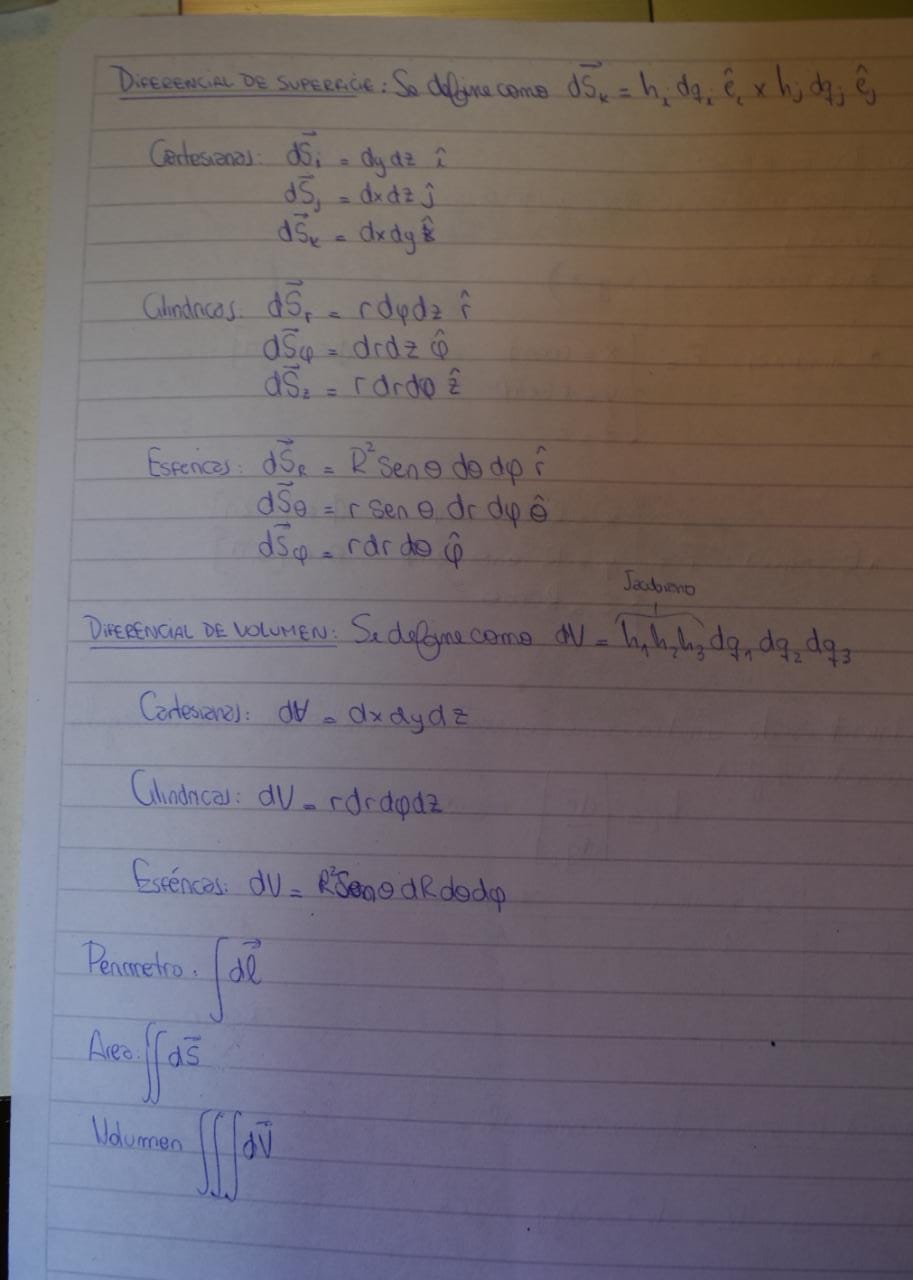 DIFERENCIAL DE SUPERFICIE: Se define como dS⃗ₖ = hᵢ dqᵢ êᵢ x hⱼ dqⱼ êⱼ
Cartesianas: dS⃗ᵢ = dydz î
dS⃗ⱼ = dxdz ĵ
dS⃗ₖ = dxdy k̂
Cilíndricas: dS⃗r = rdφdz r̂
dS⃗φ = drdz φ̂
dS⃗z = rdrdφ ẑ
Esfericas: dS⃗R = R² senθ dθ dφ r̂
dS⃗θ = r sen θ dr dφ θ̂
dS⃗φ = rdr dθ φ̂
Jacobiano
DIFERENCIAL DE VOLUMEN: Se define como dV = h₁h₂h₃dq₁dq₂dq₃
Cartesianas: dV = dxdydz
Cilindricas: dV = rdrdφdz
Esféricas: dV = R²Senθ dRdθdφ
Perimetro: ∫dl⃗
Area: ∬dS⃗
Volumen ∭dV⃗